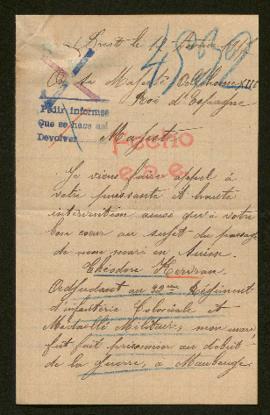 Brest le 17
4592
A Sa Majesté Alphonse XIII
Roi d'Espagne
Pedir informes
Que se hace así
Devolver
Majesté
Hecho
Je viens faire appel à
votre puissante et haute
intervention ainsi qu'à votre
bon cœur au sujet du passage
de mon mari en Suisse.
Théodore
Adjudant au 22me Régiment
d'infanterie Coloniale et
Médaillé Militaire, mon mari
fait prisonnier au début
de la guerre, à Maubeuge